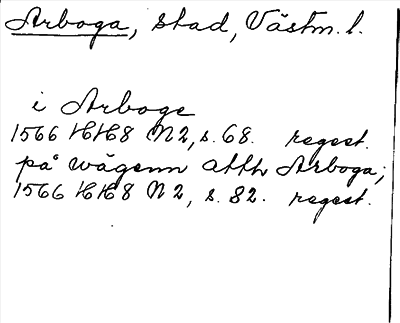 Arboga, stad, Västm. l.
i Arboge
1566 HH8 N2, s. 68. regest.
på wägenn atth Arboga;
1566 HH8 N2, s. 82. regest.